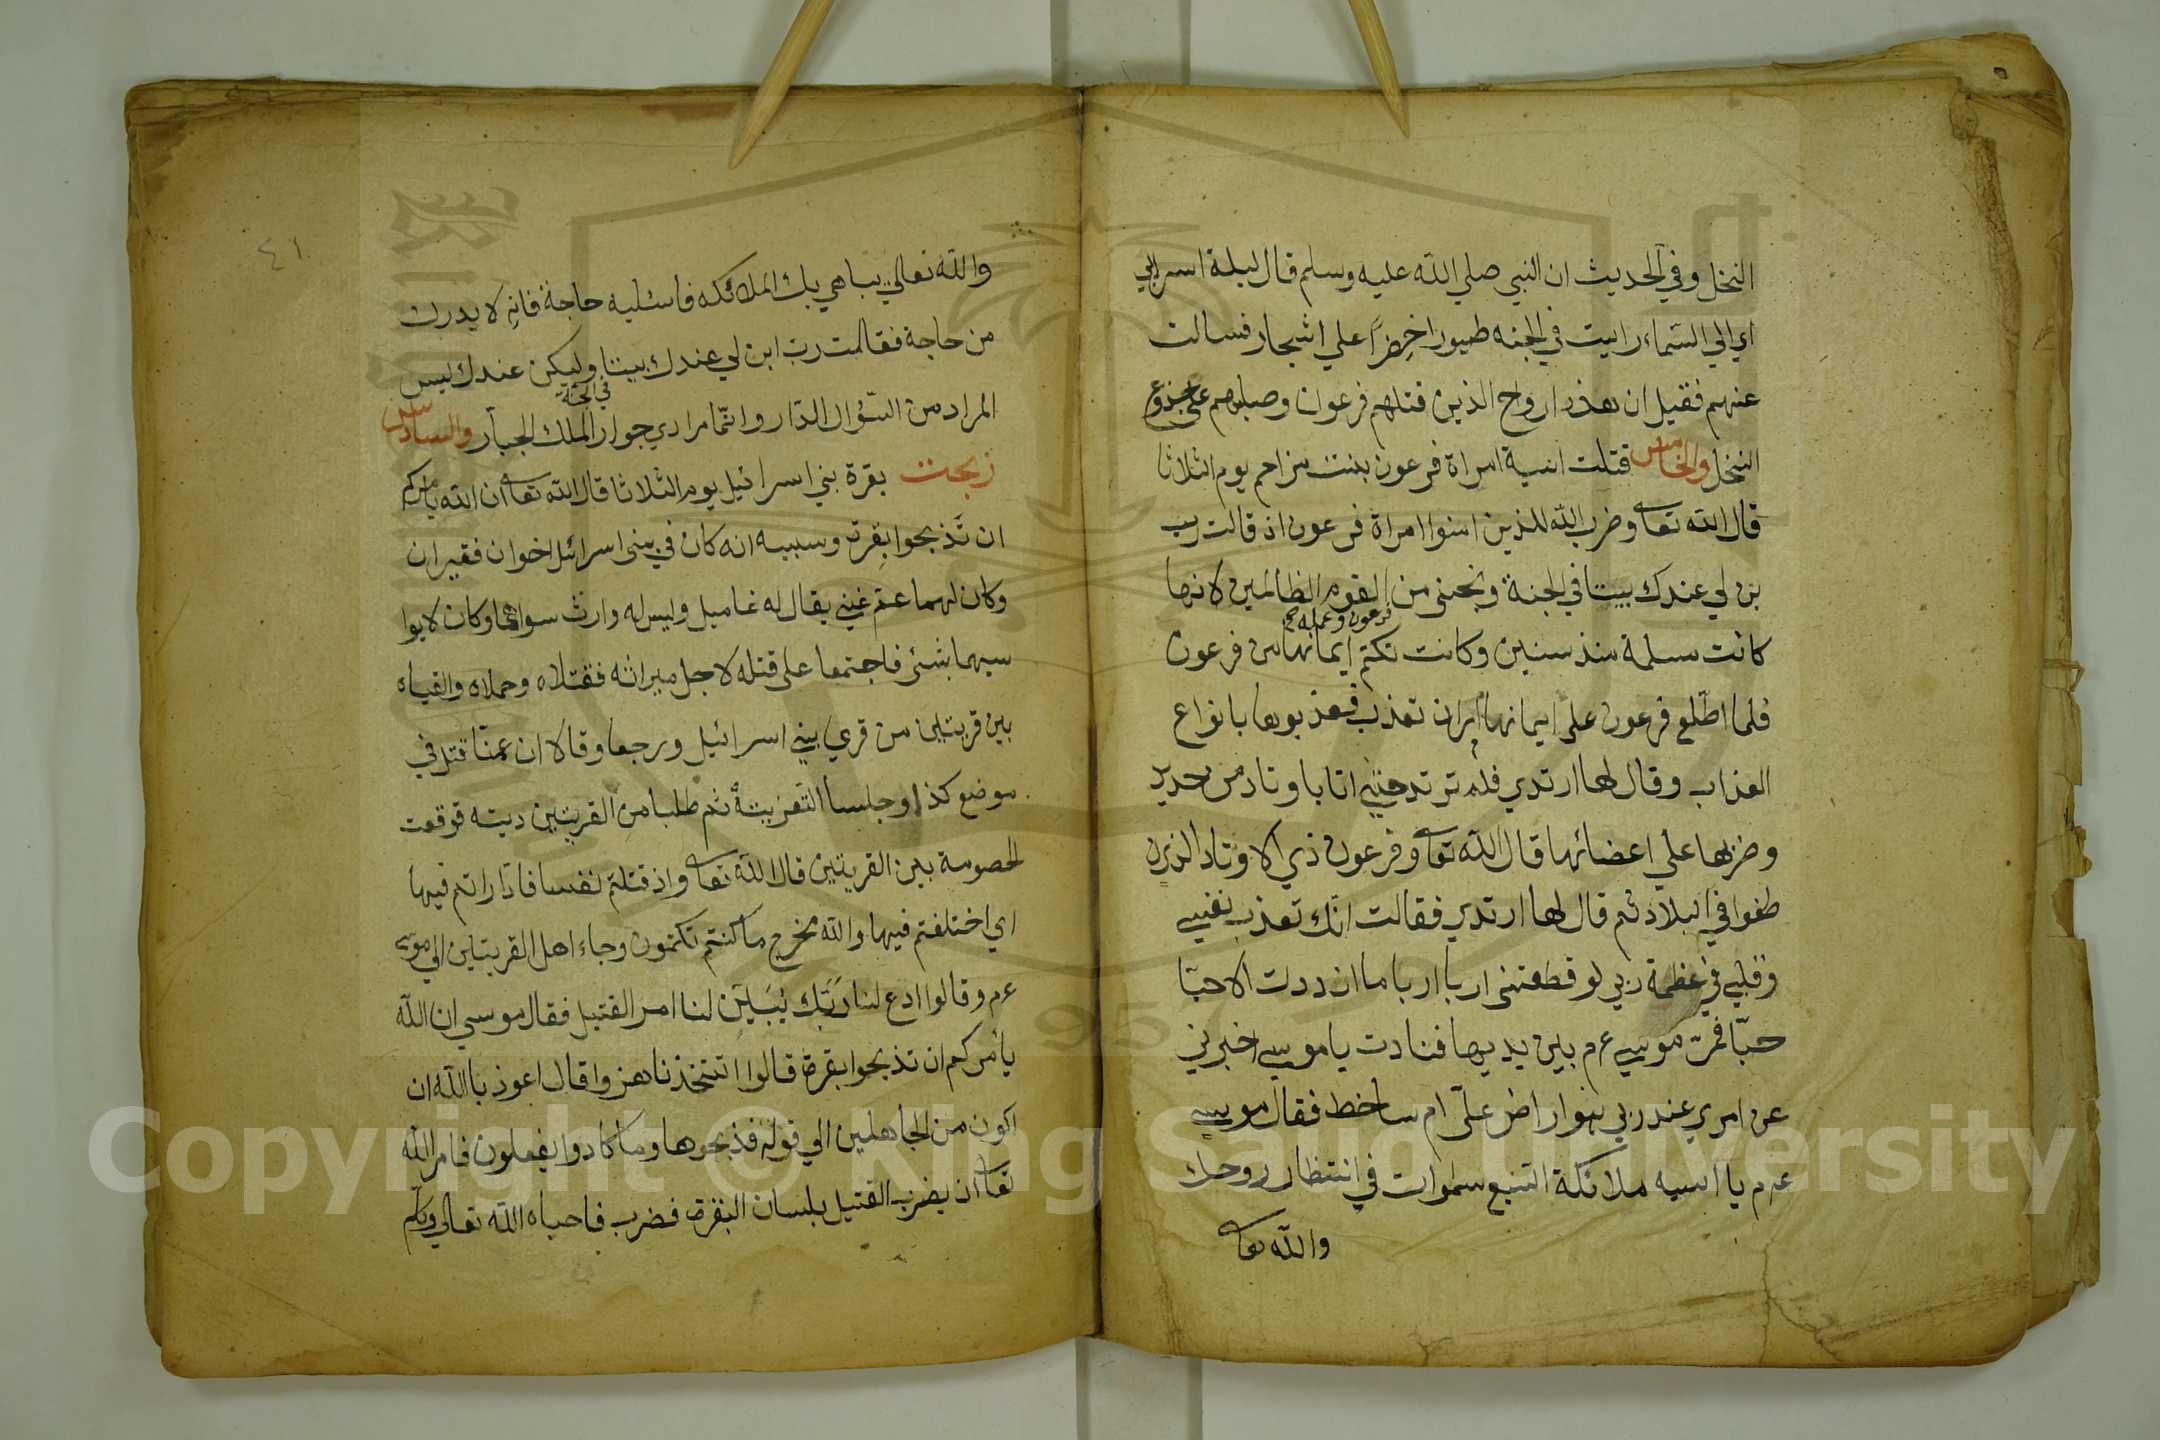 النخل وفي الحديث ان النبي صلي الله عليه وسلم قال ليلة اسري بي
اي الي السماء رايت في الجنه طيورا خضرا علي اشجار فسالت
عنهم فقيل ان هذه ارواح الذين قتلهم فرعون وصلبهم علي جذوع
النخل والخامس قتلت اسية امراة فرعون بنت مزاحم يوم الثلاثا
قال الله تعا وضرب الله للذين امنوا امراة فرعون اذ قالت رب
بن لي عندك بيتا في الجنة ونجني من القوم الظالمين لانها
فرعون وعمله صح
كانت مسلمة منذ سنين وكانت تكتم ايمانها من فرعون
فلما اطلع فرعون علي ايمانها امر ان تعذب فعذبوها بانواع
العذاب وقال لها ارتدي فلم ترتد حتي اتا باوتاد من حديد
وضربها علي اعضائها قال الله تعا وفرعون ذي الاوتاد الذين
طغوا في البلاد ثم قال لها ارتدي فقالت انك تعذب نفسي
وقلبي في عظمة ربي لو قطعتني اربا اربا ما ازددت الا حبا
حبا فمر موسي عم بين يديها فنادت يا موسي اخبرني
عن امري عند ربي هو اراض علي ام ساخط فقال موسي
عم يا اسيه ملائكة السبع سموات في انتظار روحك
والله تعا
٤١
والله تعالي يباهي بك الملائكه فاسئليه حاجة فانه لا يدرك
من حاجة فقالت رب ابن لي عندك بيتا وليكن عندك ليس
في الجنة
المراد من السؤال الدار وانما مرادي جوار الملك الجبار والسادس
ذبحت بقرة بني اسرائيل يوم الثلاثا قال الله تعا ان الله يامركم
ان تذبحوا بقرة وسببه انه كان في بني اسرائل اخوان فقيران
وكان لهما عم غني يقال له عاميل وليس له وارث سواهما وكان لا يوا
سيهما بشئ فاجتمعا علي قتله لاجل ميراثه فقتلاه وحملاه والقياه
بين قريتين من قري بني اسرائيل ورجعا وقالا ان عمنا قتل في
موضع كذا وجلسا التعزية ثم طلبا من القريتين ديته فوقعت
لخصومة بين القريتين قال الله تعا واذ قتلتم نفسا فاداراتم فيها
اي اختلفتم فيها والله مخرج ما كنتم تكتمون وجاء اهل القريتين الي موسي
عم وقالوا ادع لنا ربك يبين لنا امر القتيل فقال موسي ان الله
يأمركم ان تذبحوا بقرة قالوا اتتخذنا هزوا قال اعوذ بالله ان
اكون من الجاهلين الي قوله فذبحوها وما كادوا يفعلون فامر الله
تعا ان يضرب القتيل بلسان البقرة فضرب فاحياه الله تعالي وتكلم
Copyright © King Saud University